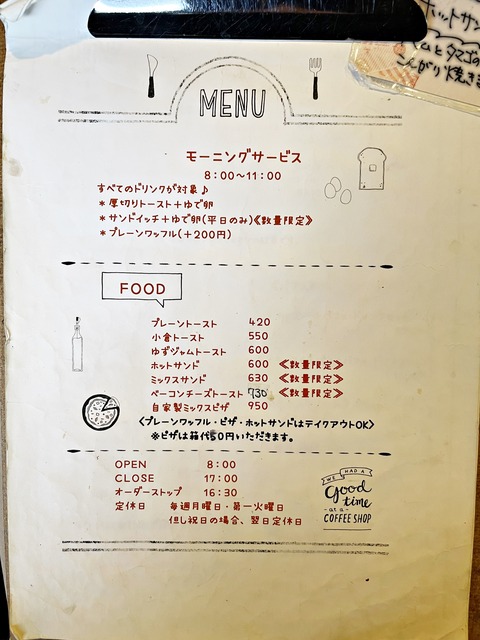 ホットサン
ハムとタマゴの
こんがり焼きま
MENU
モーニングサービス
8:00〜11:00
すべてのドリンクが対象♪
＊厚切りトースト＋ゆで卵
＊サンドイッチ＋ゆで卵(平日のみ)≪数量限定≫
＊プレーンワッフル(＋200円)
FOOD
プレーントースト 420
小倉トースト 550
ゆずジャムトースト 600
ホットサンド 600 ≪数量限定≫
ミックスサンド 630 ≪数量限定≫
ベーコンチーズトースト 730 ≪数量限定≫
自家製ミックスピザ 950
〈プレーンワッフル・ピザ・ホットサンドはテイクアウトOK〉
※ピザは箱代50円いただきます。
OPEN 8:00
CLOSE 17:00
オーダーストップ 16:30
定休日 毎週月曜日・第一火曜日
但し祝日の場合、翌日定休日
WE HAD A
Good
time
at a
COFFEE SHOP